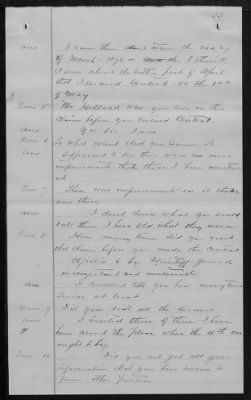 33
ans I saw them there from the 2nd day
of March 1890 and I think
it was about the latter part of April
that I entered Contest or the 1st
of May
Ques 5 Mr Holland was you ever on the
Claim before you entered Contest
ans Yes Sir I was
Ques 6 To what extent did you examine it
ans Sufficient to see there were no more
improvements than those I have mention
ed
Ques 7 There was improvements on it then
was there
ans I dont know what you would
call them I have told what they were
Ques 8 How many times did you visit
this claim before you made the Contest
affidavit by
investigated and
ans I couldnt tell you how many times
twice at least
Ques 9 Did you visit all the corners
ans I visited three of them I have
been around the place where the 4th one
ought to be
Ques 10 Did you not get all your
information that you have sworn to
from other parties